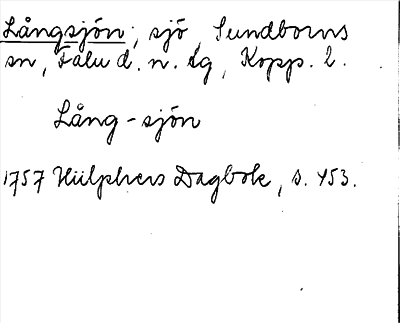 Långsjön, sjö, Sundborns
sn, Falu d. n. tg, Kopp. l.
Lång-sjön
1757 Hülphers Dagbok, s. 453.